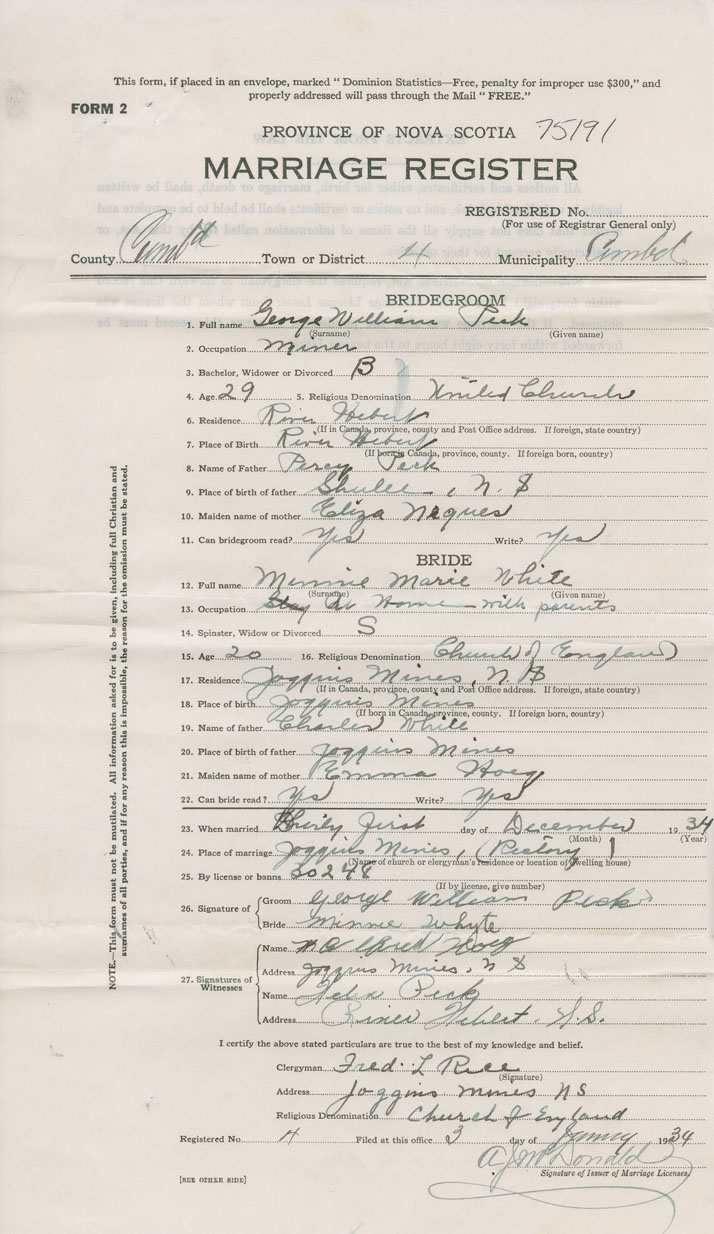 This form, if placed in an envelope, marked “ Dominion Statistics—Free, penalty for improper use $300,” and
properly addressed will pass through the Mail “ FREE.”
FORM 2
PROVINCE OF NOVA SCOTIA 75191
MARRIAGE REGISTER
REGISTERED No.
(For use of Registrar General only)
County Cumb'd Town or District 4 Municipality Cumbd
BRIDEGROOM
1. Full name George William Peck
(Surname) (Given name)
2. Occupation Miner
3. Bachelor, Widower or Divorced B
4. Age 29 5. Religious Denomination United Church
6. Residence River Hebert
(If in Canada, province, county and Post Office address. If foreign, state country)
7. Place of Birth River Hebert
(If born in Canada, province, county. If foreign born, country)
8. Name of Father Percy Peck
9. Place of birth of father Shulee, N. S
10. Maiden name of mother Eliza
11. Can bridegroom read? Yes Write? Yes
BRIDE
12. Full name Minnie Marie White
(Surname) (Given name)
13. Occupation At Home with parents
14. Spinster, Widow or Divorced S
15. Age 20 16. Religious Denomination Church of England
17. Residence Joggins Mines, N S
(If in Canada, province, county and Post Office address. If foreign, state country)
18. Place of birth Joggins Mines
(If born in Canada, province, county. If foreign born, country)
19. Name of father Charles White
20. Place of birth of father Joggins Mines
21. Maiden name of mother Emma Hoeg
22. Can bride read? Yes Write? Yes
23. When married Thirty First day of December 1934
(Month) (Year)
24. Place of marriage Joggins Mines, (Rectory)
(Name of church or clergyman's residence or location of dwelling house)
25. By license or banns 30248
(If by license, give number)
26. Signature of Groom George William Peck
Bride Minnie Whyte
27. Signatures of Witnesses
Name Alfred Hoeg
Address Joggins Mines, N S
Name Peck
Address River Hebert. N.S.
I certify the above stated particulars are true to the best of my knowledge and belief.
Clergyman Fred. L Rice
(Signature)
Address Joggins Mines N S
Religious Denomination Church of England
Registered No. 4 Filed at this office 3 day of 1934
A J McDonald
Signature of Issuer of Marriage Licenses.
[SEE OTHER SIDE]
NOTE.—This form must not be mutilated. All information asked for is to be given, including full Christian and
surnames of all parties, and if for any reason this is impossible, the reason for the omission must be stated.